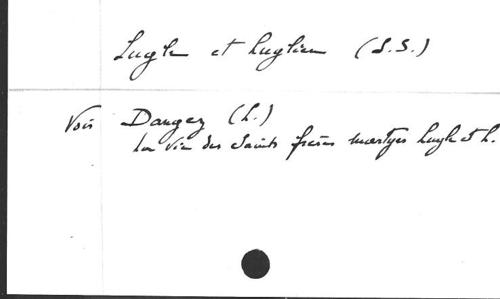 Lugle et Luglien (S.S.)
Voir Dangez (L.)
La Vie des Saints frères martyrs Lugle et L.